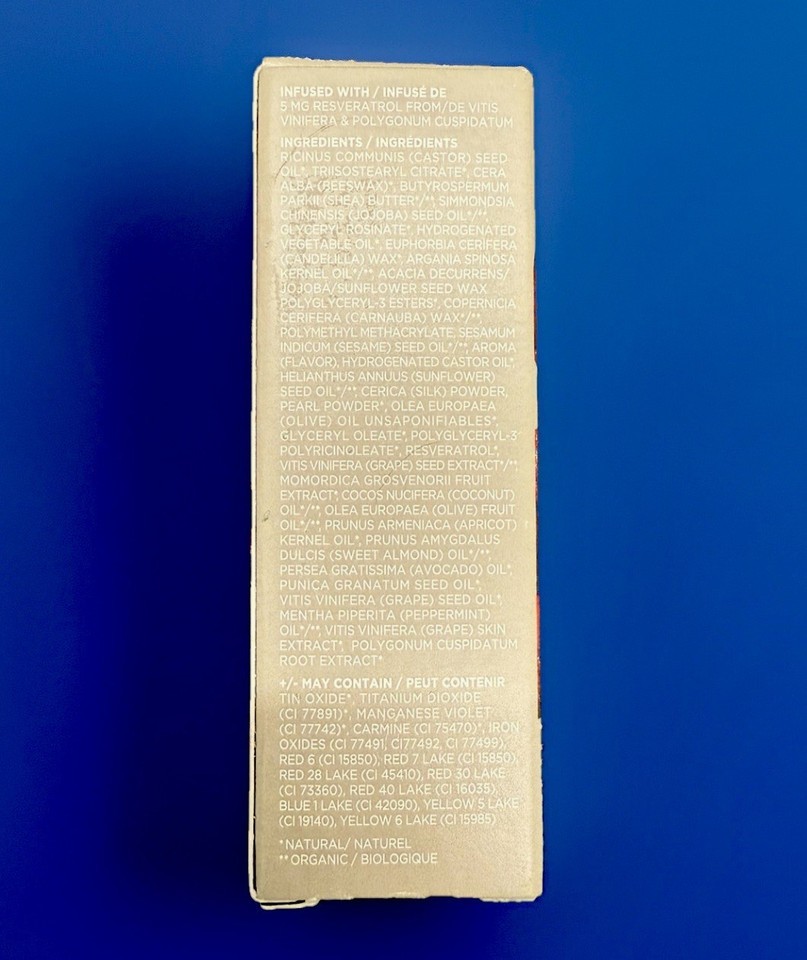 INFUSED WITH / INFUSÉ DE
5 MG RESVERATROL FROM/DE VITIS
VINIFERA & POLYGONUM CUSPIDATUM
INGREDIENTS / INGRÉDIENTS
RICINUS COMMUNIS (CASTOR) SEED
OIL*, TRIISOSTEARYL CITRATE*, CERA
ALBA (BEESWAX)*, BUTYROSPERMUM
PARKII (SHEA) BUTTER*/**, SIMMONDSIA
CHINENSIS (JOJOBA) SEED OIL*/**,
GLYCERYL ROSINATE*, HYDROGENATED
VEGETABLE OIL*, EUPHORBIA CERIFERA
(CANDELILLA) WAX*, ARGANIA SPINOSA
KERNEL OIL*/**, ACACIA DECURRENS/
JOJOBA/SUNFLOWER SEED WAX
POLYGLYCERYL-3 ESTERS*, COPERNICIA
CERIFERA (CARNAUBA) WAX*/**,
POLYMETHYL METHACRYLATE, SESAMUM
INDICUM (SESAME) SEED OIL*/**, AROMA
(FLAVOR), HYDROGENATED CASTOR OIL*,
HELIANTHUS ANNUUS (SUNFLOWER)
SEED OIL*/**, CERICA (SILK) POWDER,
PEARL POWDER*, OLEA EUROPAEA
(OLIVE) OIL UNSAPONIFIABLES*,
GLYCERYL OLEATE*, POLYGLYCERYL-3
POLYRICINOLEATE*, RESVERATROL*,
VITIS VINIFERA (GRAPE) SEED EXTRACT*/**,
MOMORDICA GROSVENORII FRUIT
EXTRACT*, COCOS NUCIFERA (COCONUT)
OIL*/**, OLEA EUROPAEA (OLIVE) FRUIT
OIL*/**, PRUNUS ARMENIACA (APRICOT)
KERNEL OIL*, PRUNUS AMYGDALUS
DULCIS (SWEET ALMOND) OIL*/**,
PERSEA GRATISSIMA (AVOCADO) OIL*,
PUNICA GRANATUM SEED OIL*,
VITIS VINIFERA (GRAPE) SEED OIL*,
MENTHA PIPERITA (PEPPERMINT)
OIL*/**, VITIS VINIFERA (GRAPE) SKIN
EXTRACT*, POLYGONUM CUSPIDATUM
ROOT EXTRACT*
+/- MAY CONTAIN / PEUT CONTENIR
TIN OXIDE*, TITANIUM DIOXIDE
(CI 77891)*, MANGANESE VIOLET
(CI 77742)*, CARMINE (CI 75470)*, IRON
OXIDES (CI 77491, CI77492, CI 77499),
RED 6 (CI 15850), RED 7 LAKE (CI 15850),
RED 28 LAKE (CI 45410), RED 30 LAKE
(CI 73360), RED 40 LAKE (CI 16035),
BLUE 1 LAKE (CI 42090), YELLOW 5 LAKE
(CI 19140), YELLOW 6 LAKE (CI 15985)
*NATURAL/ NATUREL
**ORGANIC / BIOLOGIQUE